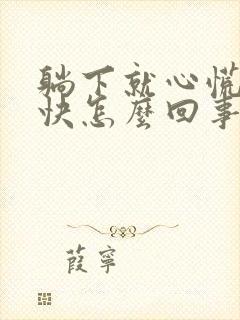 躺下就心慌
快怎麼回事
葭寧